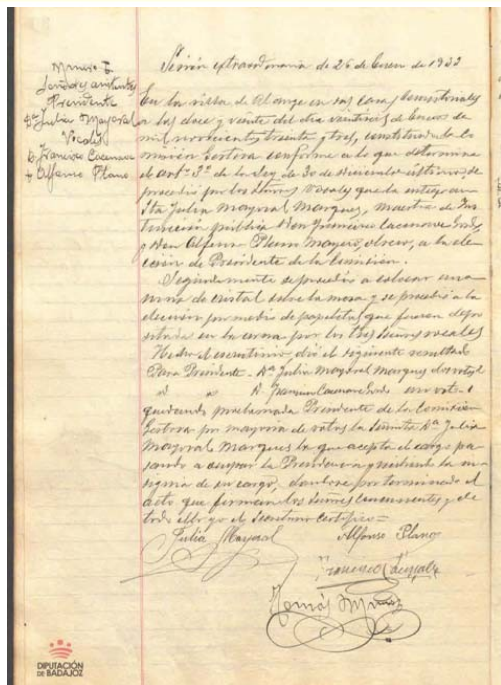 Señores asistentes
Presidente
Dª Julia Mayoral
Vocales
D. Francisco Casanova
" Alfonso Plano
Sesión extraordinaria de 26 de Enero de 1933
En la villa de Alange en sus casas Consistoriales
a las doce y veinte del dia veintiseis de Enero de
mil novecientos treinta y tres, constituida la Co-
misión Gestora conforme a lo que determina
el artº 1º de la Ley de 30 de diciembre último, se
procedió por los Señores vocales que la integran
Sta Julia Mayoral Marques, maestra de Ins-
trucción pública Don Francisco Casanova
y Don Alfonso Plano Mayero, obrero, a la elec-
ción de Presidente de la Comisión.
Seguidamente se procedió a colocar una
urna de cristal sobre la mesa y se procedió a la
elección por medio de papeletas que fueron depo-
sitadas en la urna por los tres Señores vocales
Hecho el escrutinio, dió el siguiente resultado
Para Presidente - Dª Julia Mayoral Marques dos votos
D. Francisco Casanova un voto
quedando proclamada Presidente de la Comisión
Gestora por mayoria de votos la Señorita Dª Julia
Mayoral Marques la que acepta el cargo pa-
sando a ocupar la Presidencia y recibiendo la in-
signia de su cargo, dandose por terminado el
acto que firman los Señores concurrentes y de
todo ello yo el Secretario certifico =
Julia Mayoral
Alfonso Plano
Francisco
Tomás Muñoz
DIPUTACIÓN
DE BADAJOZ